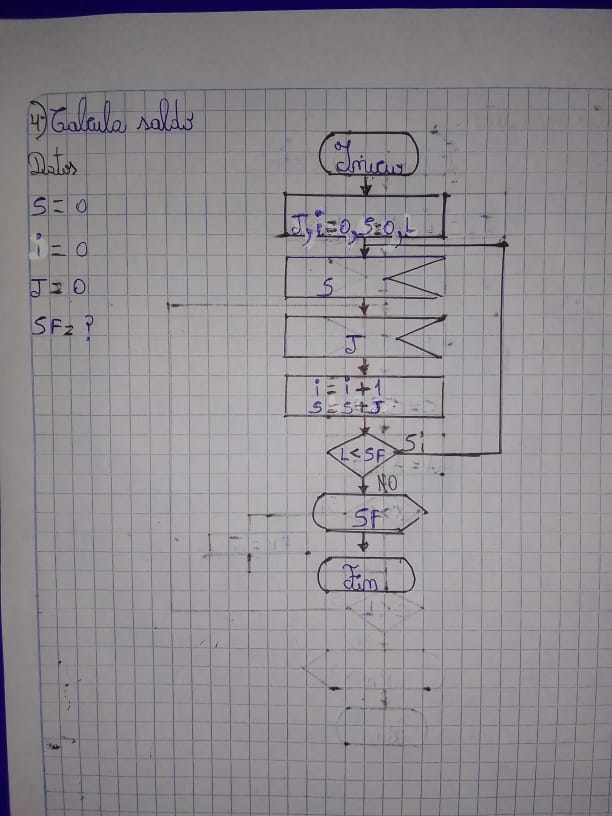 4) Calcula saldo
Datos
S = 0
i = 0
J = 0
SF = ?
Inicio
J, i=0, S=0, L
S
J
i = i + 1
S = S + J
L < SF
Si
NO
SF
Fin